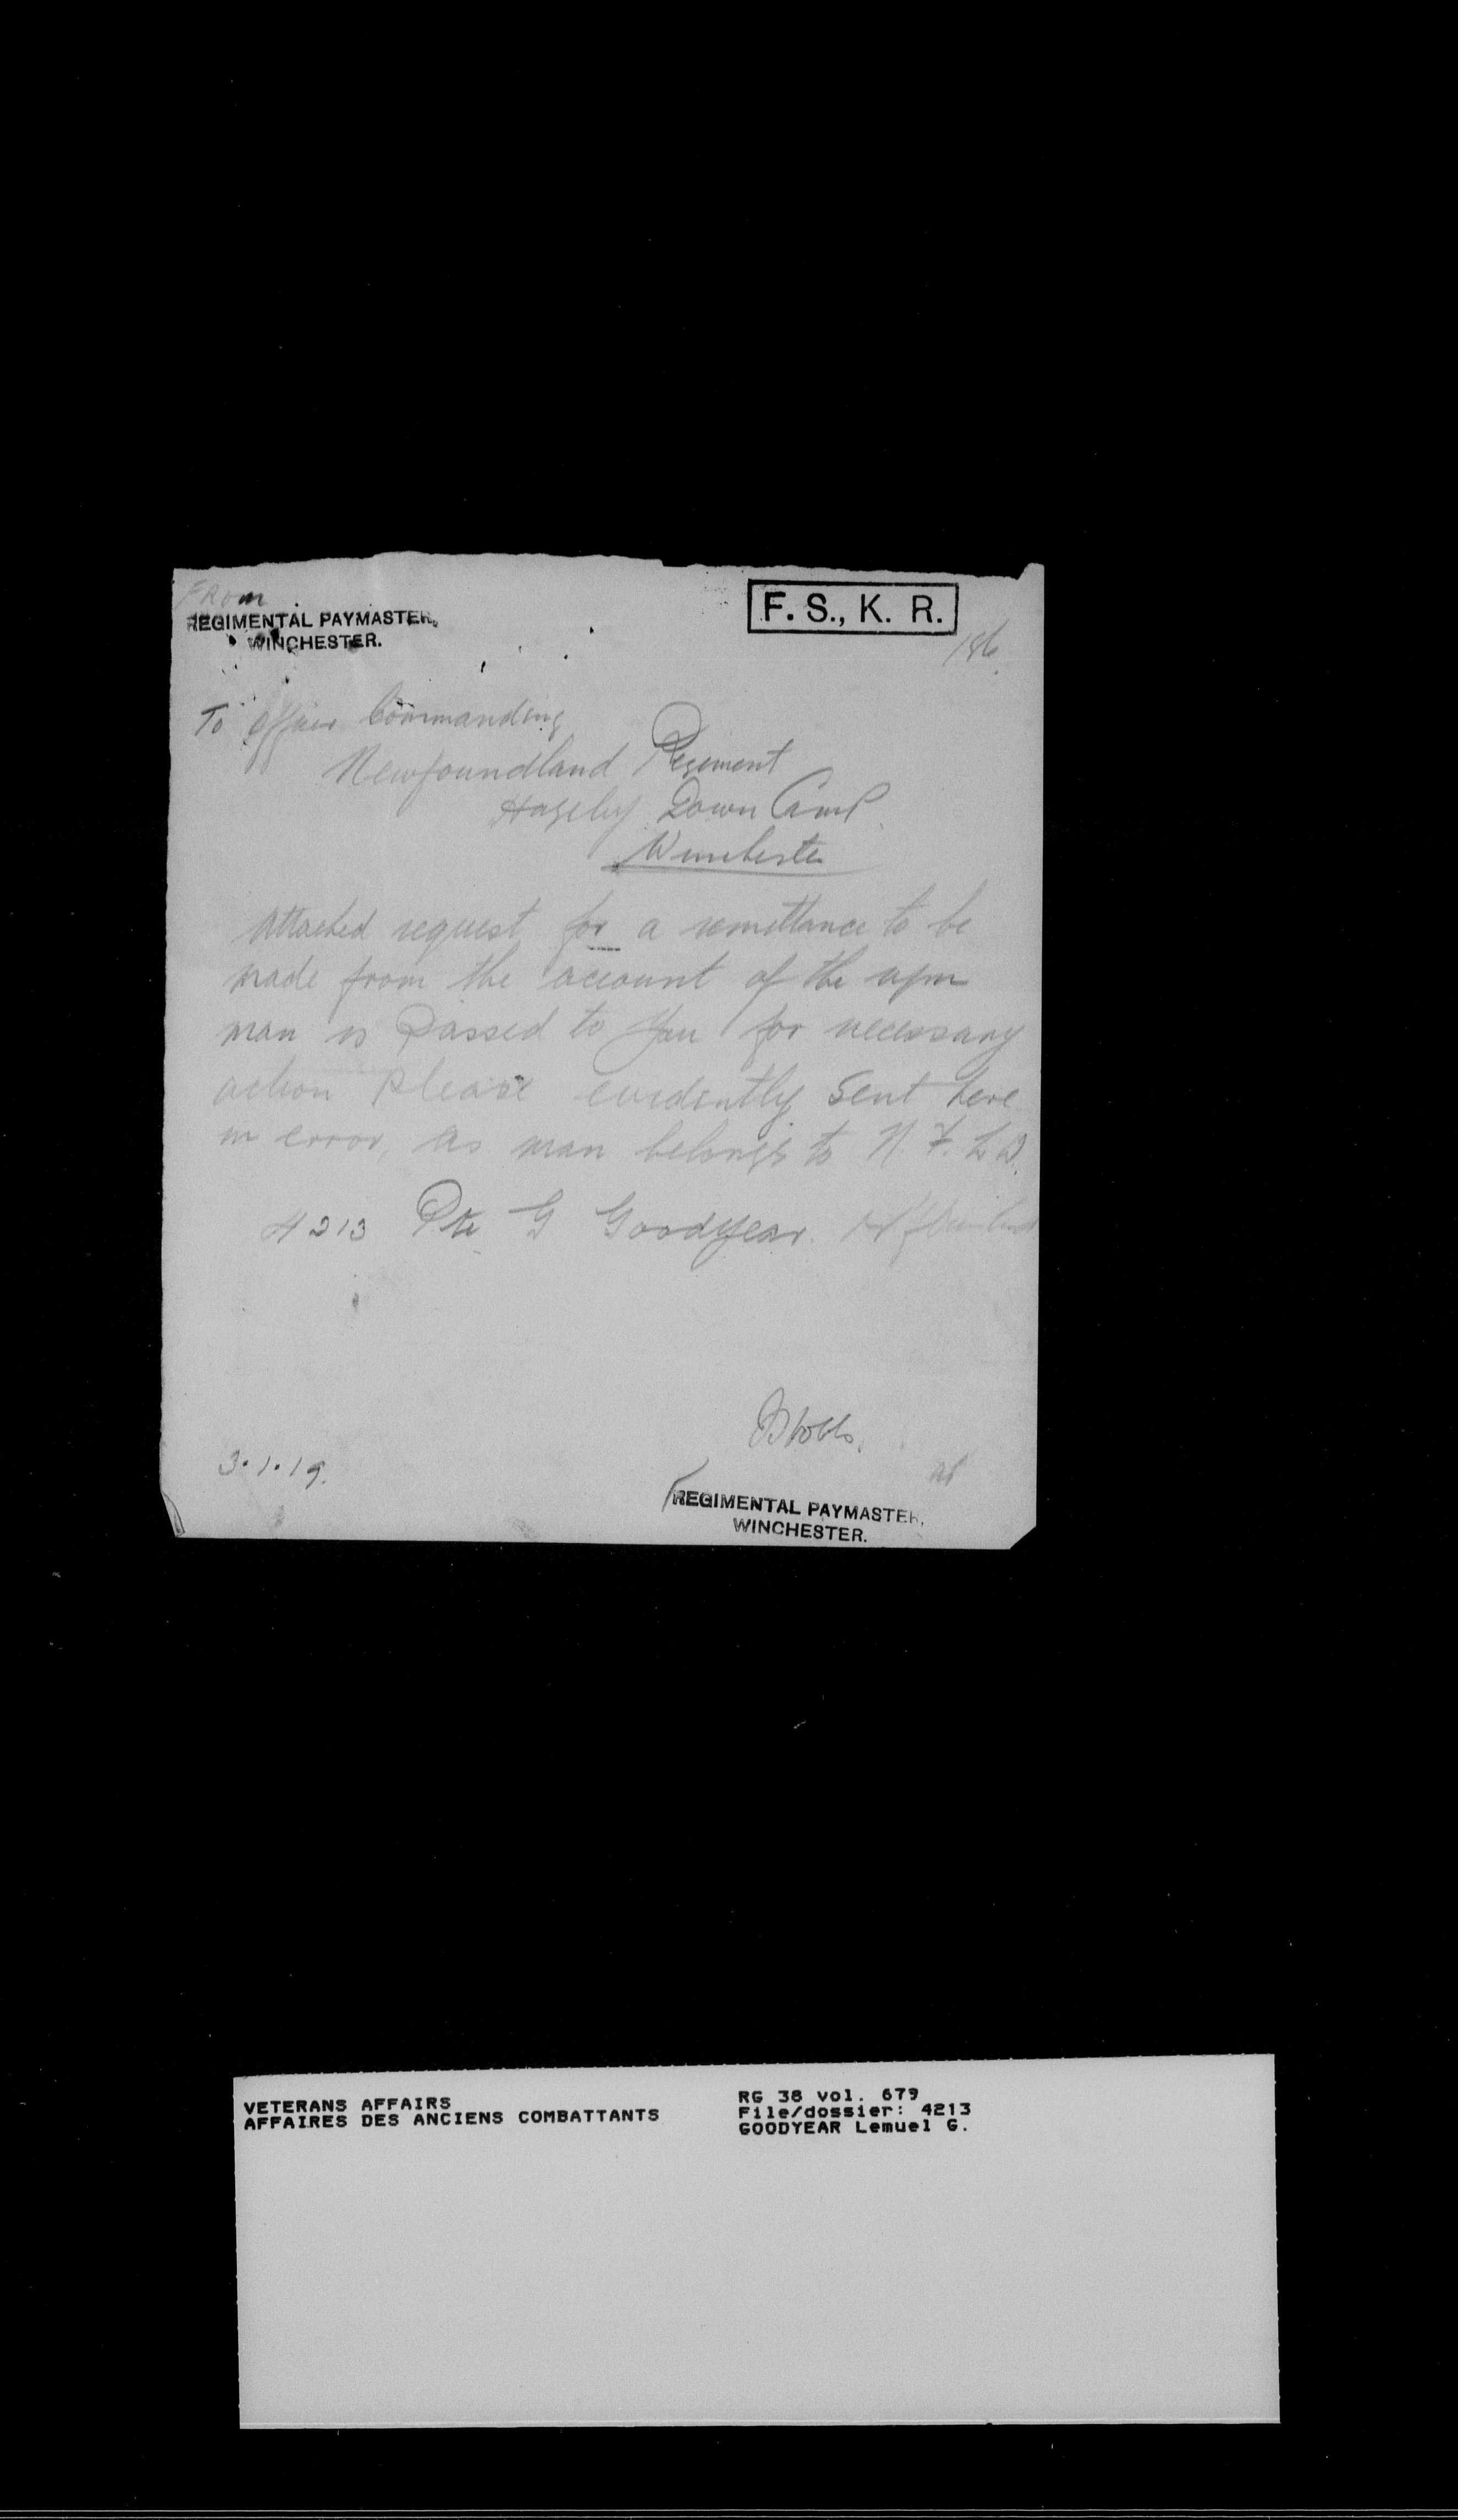 FROM
REGIMENTAL PAYMASTER,
WINCHESTER.
F. S., K. R.
186
To Officer Commanding
Newfoundland Regiment
Hazeley Down Camp
Winchester
Attached request for a remittance to be
made from the account of the
man is passed to you for necessary
action please evidently sent here
in error, as man belongs to N. F. L D.
4213 Pte G Goodyear
3.1.19.
REGIMENTAL PAYMASTER,
WINCHESTER.
VETERANS AFFAIRS
AFFAIRES DES ANCIENS COMBATTANTS
RG 38 vol. 679
File/dossier: 4213
GOODYEAR Lemuel G.